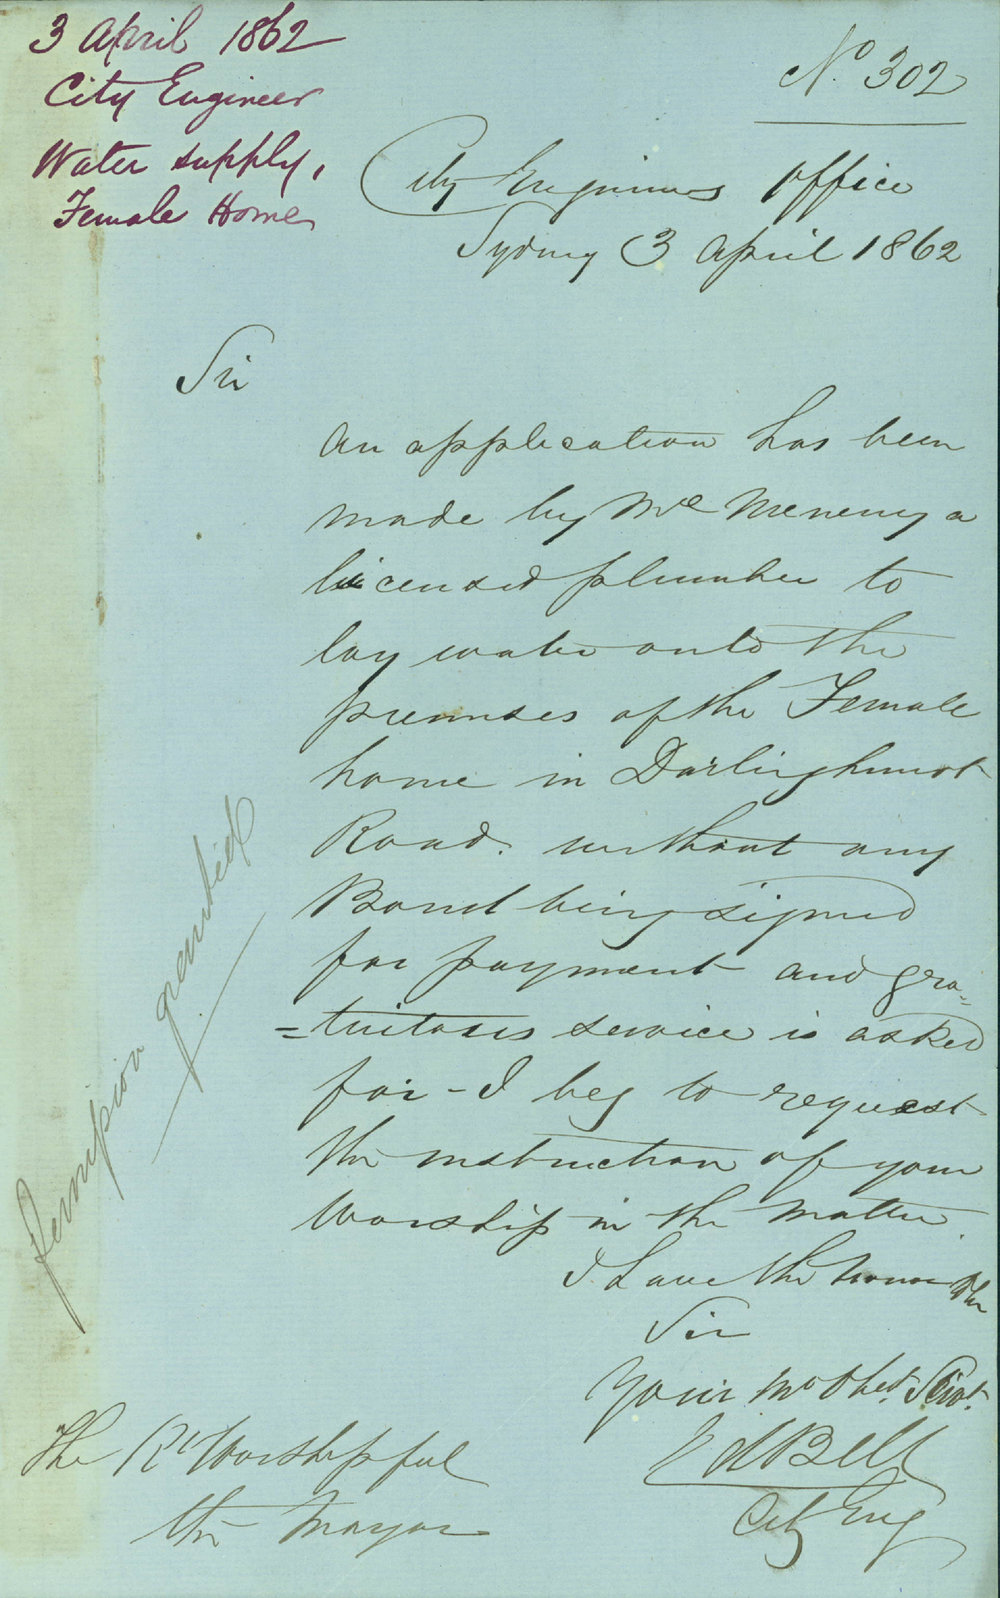 3 April 1862
City Engineer
Water supply,
Female Home
No. 302
City Engineers office
Sydney 3 April 1862
Sir
An application has been
made by Mr Meneny a
licensed plumber to
lay water onto the
premises of the Female
home in Darlinghurst
Road. without any
Bond being signed
for payment and gra=
=tuitous service is asked
for - I beg to request
the instruction of your
Worship in the matter.
I have the honor &
Sir
Your Mt Obet. Servt.
Ed Bell
City Eng
permission granted
The Rt Worshipful
the Mayor